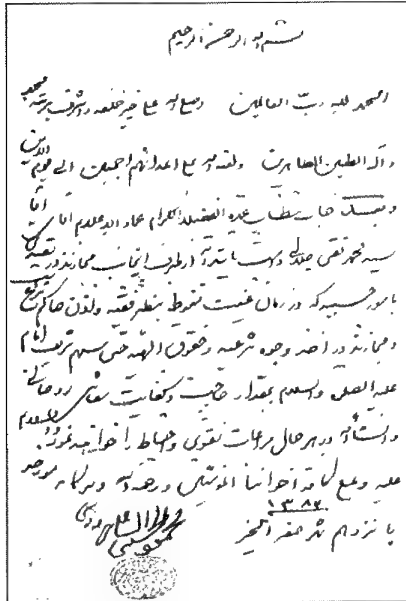 بسم الله الرحمن الرحیم
الحمد لله رب العالمین وصلی الله علی خیر خلقه واشرف بریته محمد
وآله الطیبین الطاهرین ولعنة الله علی اعدائهم اجمعین الی یوم الدین
وبعد جناب مستطاب عمدة الفضلاء الکرام عماد الاعلام آقای آقا
سید محمد تقی دامت تأییداته از طرف اینجانب مجازند در تصدی
بامور حسبیه که در زمان غیبت منوط بنظر فقیه واذن حاکم شرع
ومجازند در اخذ وجوه شرعیه وحقوق الهیه حتی سهم مبارک امام
علیه الصلوة والسلام بمقدار حاجت وکفایت
وانشاء الله در هر حال مراعات تقوی واحتیاط را خواهند نمود والسلام
علیه وعلی کافة اخواننا المؤمنین ورحمة الله وبرکاته مورخه
پانزدهم شهر صفر الخیر ۱۳۸۷